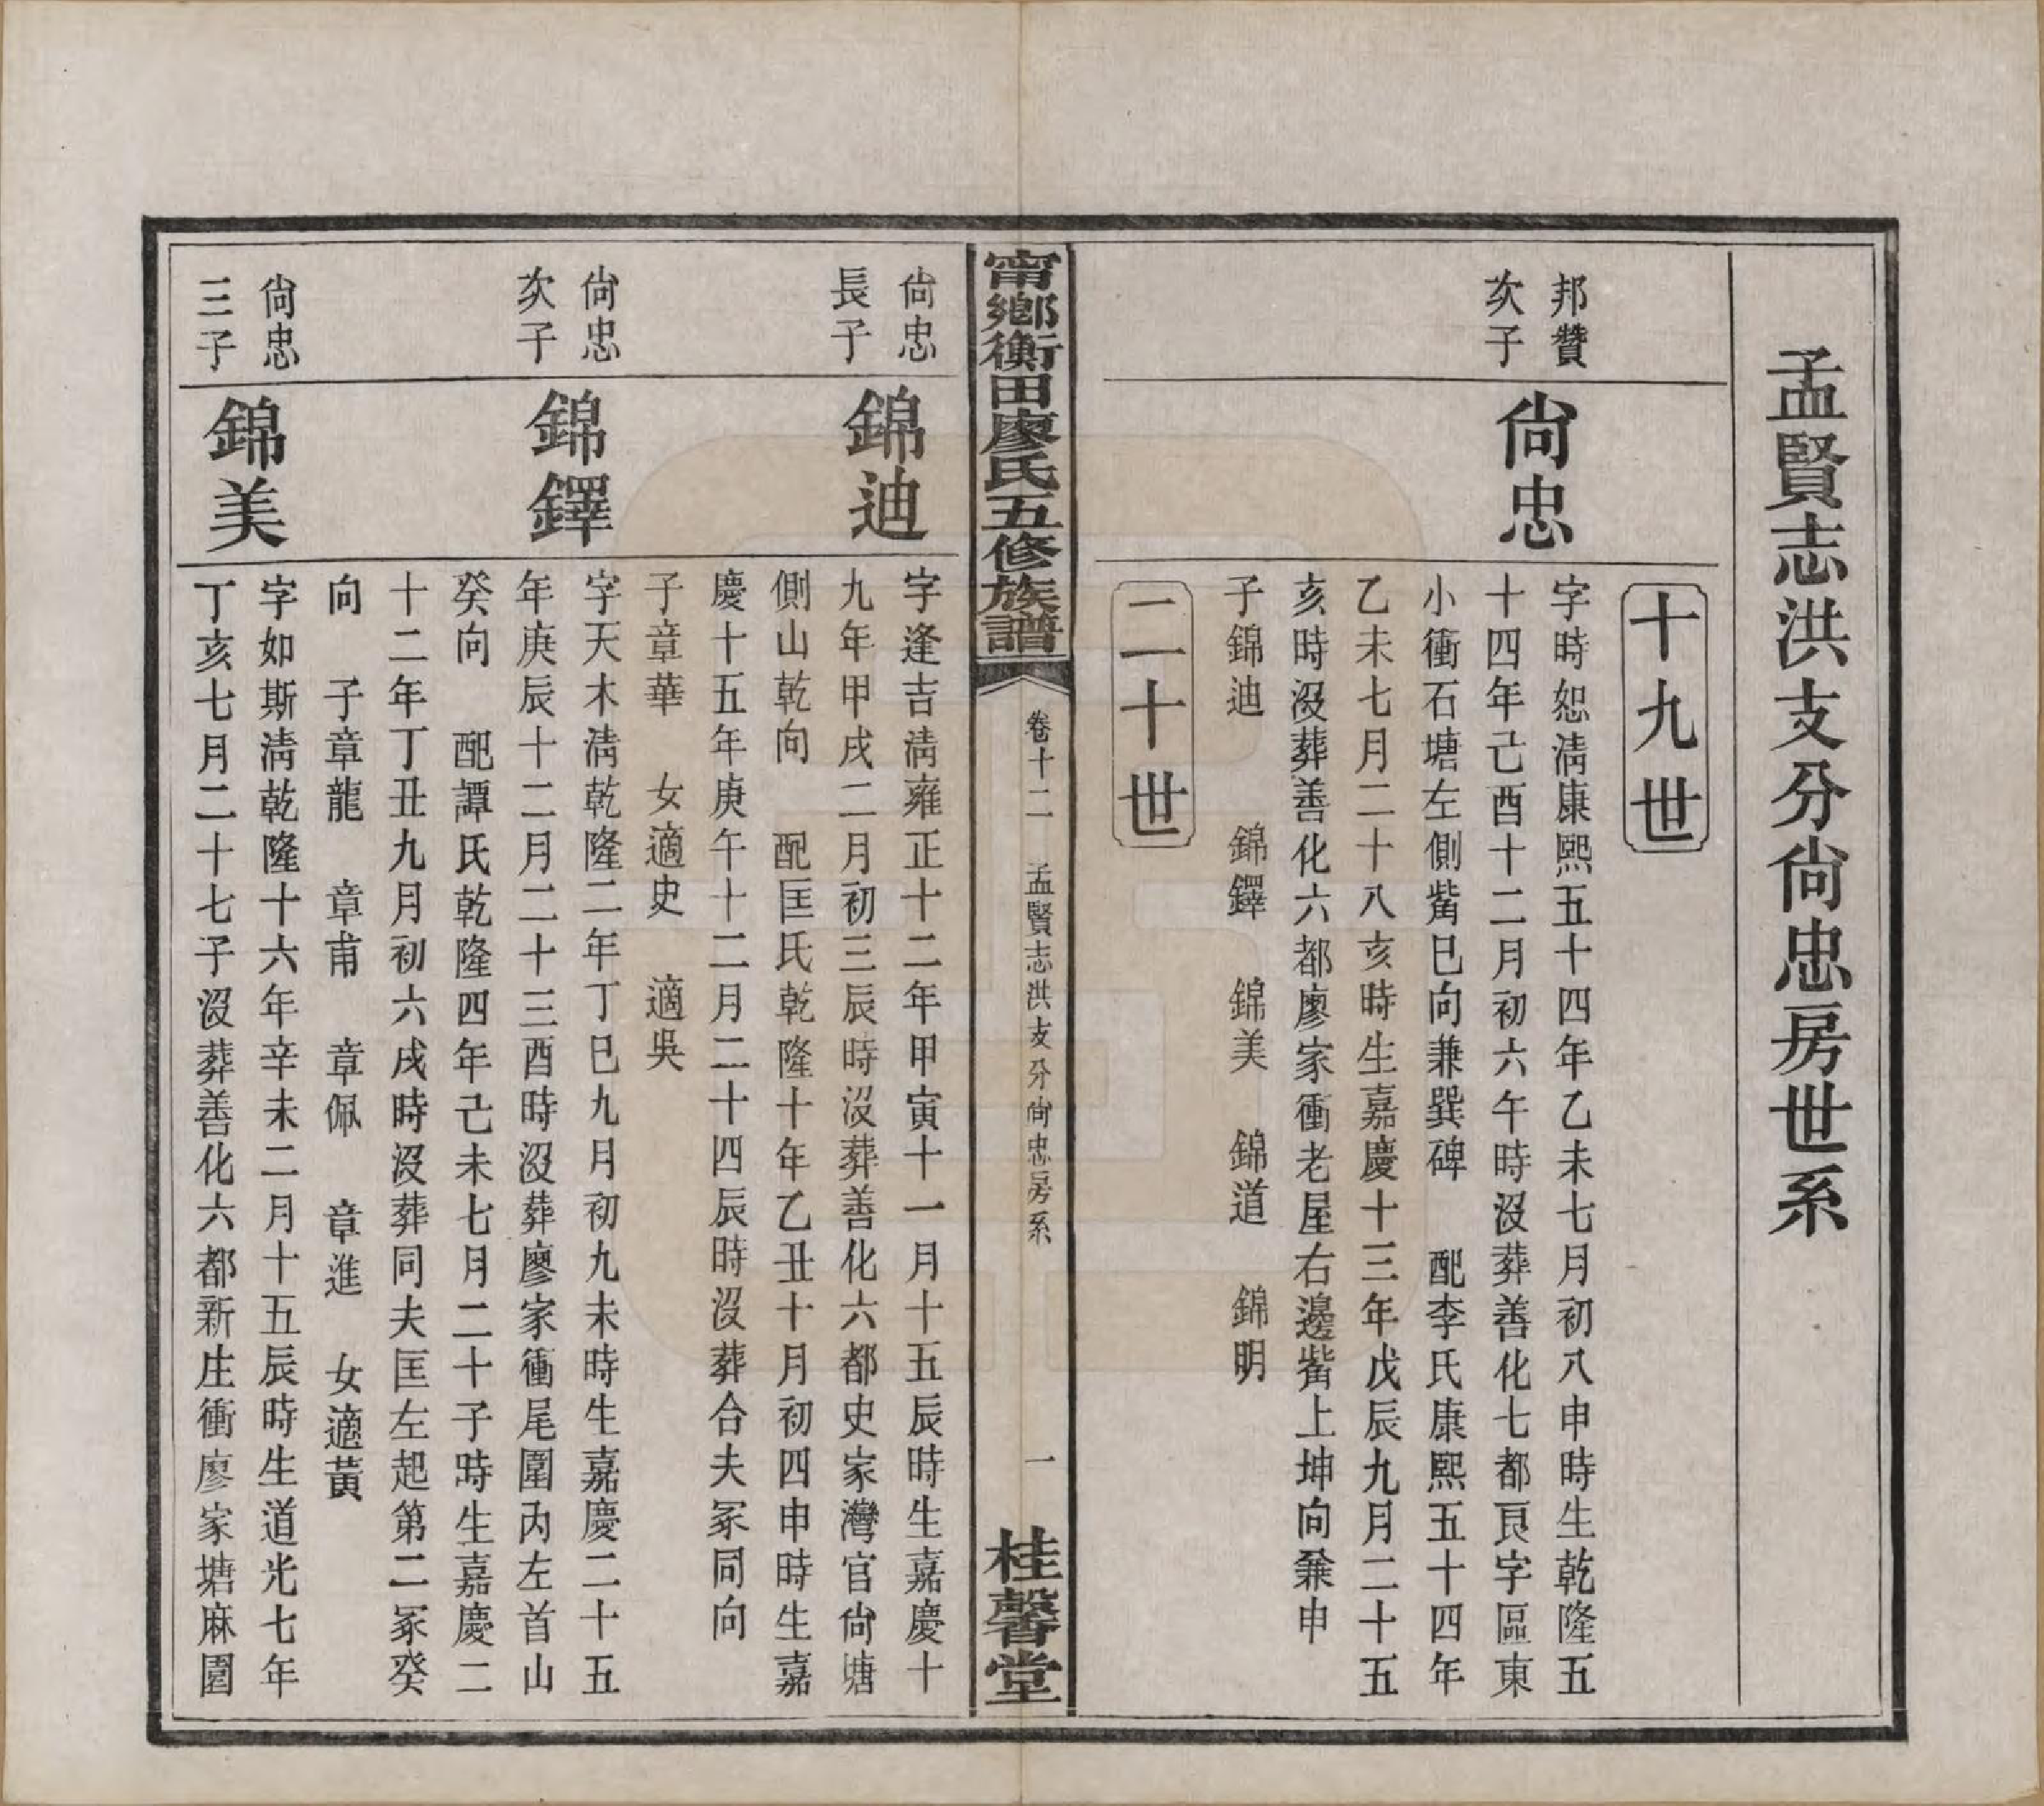 孟賢志洪支分尙忠房世系
十九世
邦贊
次子
尙忠
字時恕淸康熙五十四年乙未七月初八申時生乾隆五
十四年己酉十二月初六午時沒葬善化七都良字區東
小衝石塘左側觜巳向兼巽碑　配李氏康熙五十四年
乙未七月二十八亥時生嘉慶十三年戊辰九月二十五
亥時沒葬善化六都廖家衝老屋右邊觜上坤向兼申
子錦迪　錦鐸　錦美　錦道　錦明
二十世
甯鄉衡田廖氏五修族譜
卷十二　孟賢志洪支分尙忠房系
一
桂馨堂
尙忠
長子
錦迪
字逢吉淸雍正十二年甲寅十一月十五辰時生嘉慶十
九年甲戌二月初三辰時沒葬善化六都史家灣官尙塘
側山乾向　配匡氏乾隆十年乙丑十月初四申時生嘉
慶十五年庚午十二月二十四辰時沒葬合夫冢同向
子章華　女適史　適吳
尙忠
次子
錦鐸
字天木淸乾隆二年丁巳九月初九未時生嘉慶二十五
年庚辰十二月二十三酉時沒葬廖家衝尾圍內左首山
癸向　配譚氏乾隆四年己未七月二十子時生嘉慶二
十二年丁丑九月初六戌時沒葬同夫匡左起第二冢癸
向　子章龍　章甫　章佩　章進　女適黃
尙忠
三子
錦美
字如斯淸乾隆十六年辛未二月十五辰時生道光七年
丁亥七月二十七子沒葬善化六都新庄衝廖家塘麻園